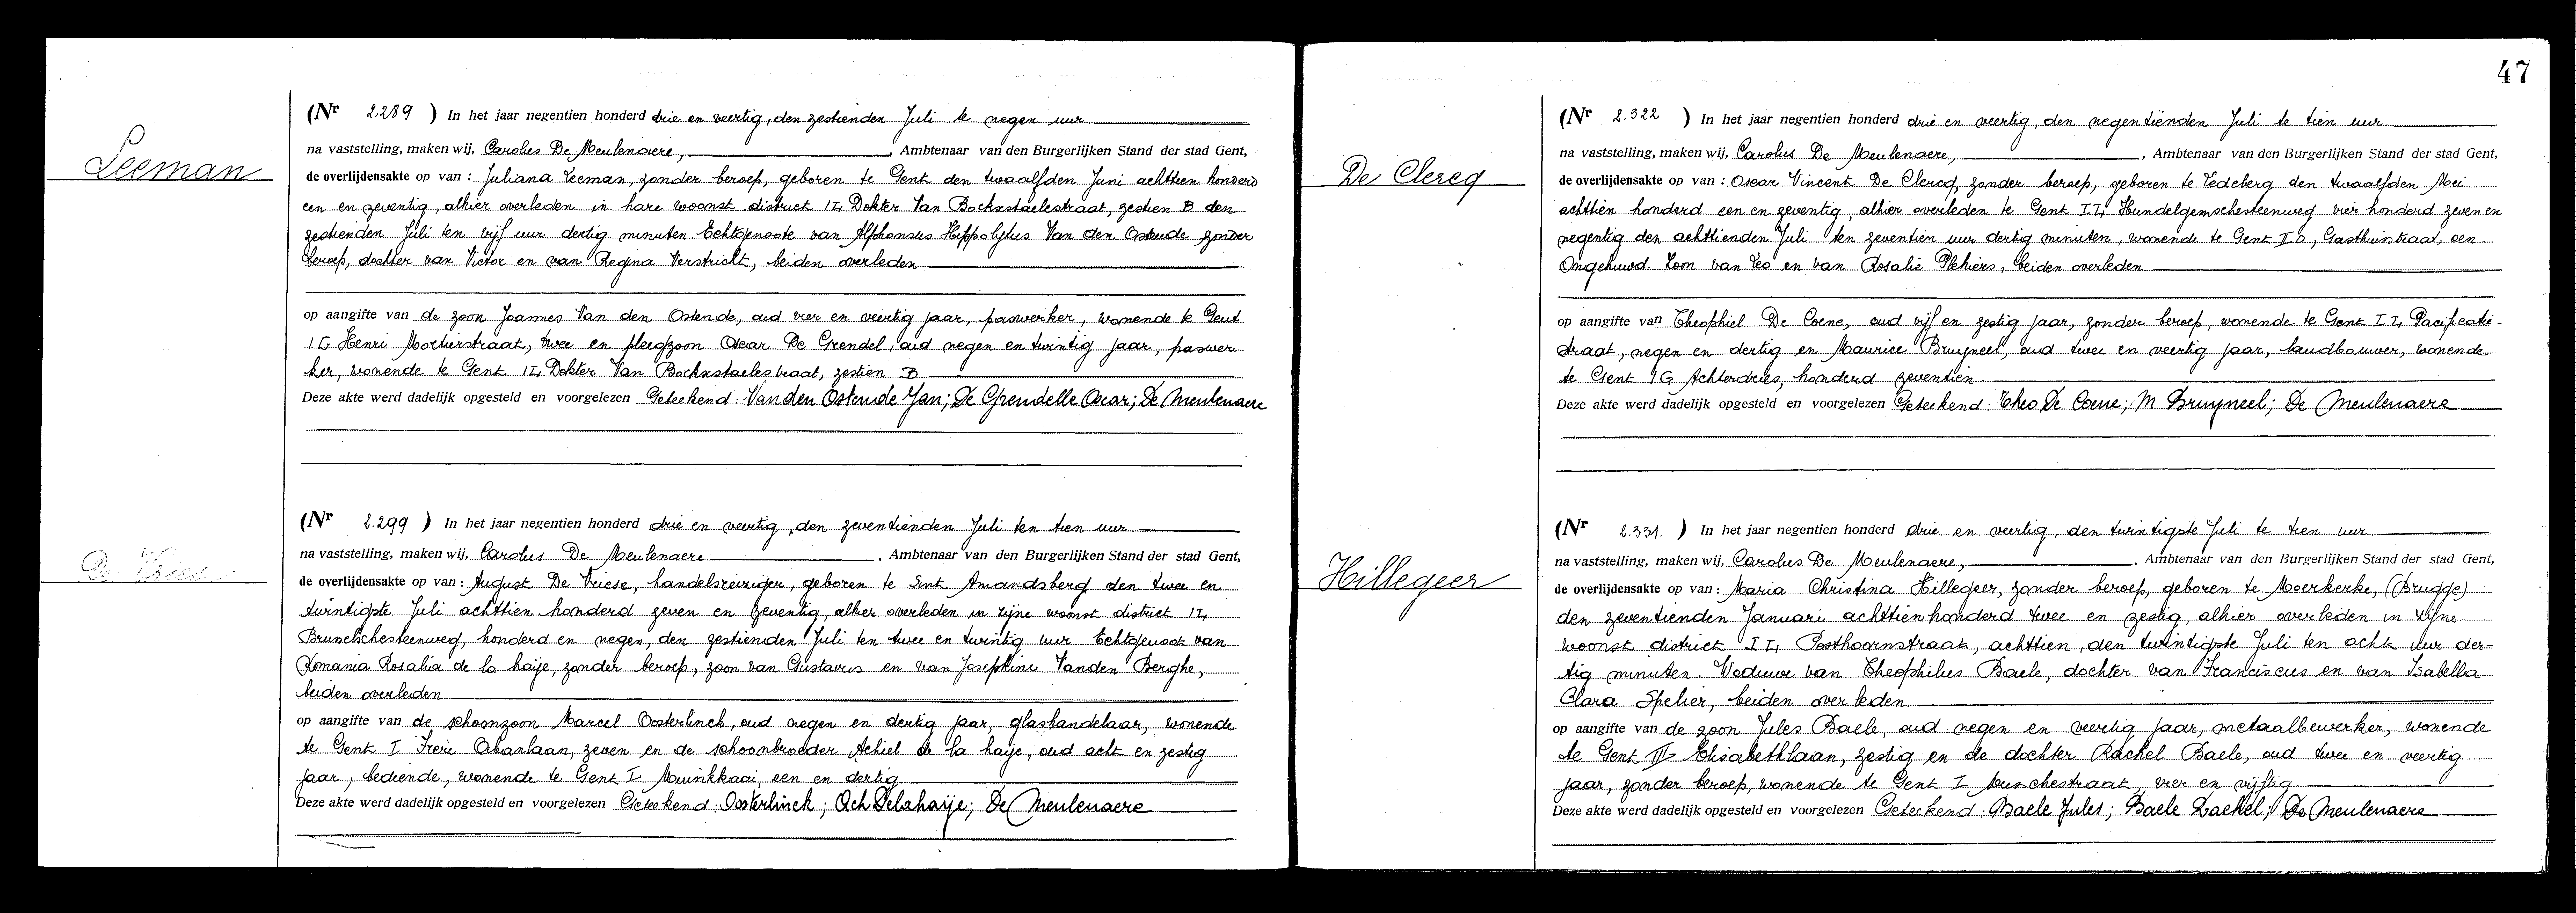 Leeman
(Nr 2.289 ) In het jaar negentien honderd drie en veertig, den zestienden Juli te negen uur
na vaststelling, maken wij, Carolus De Meulenaere, , Ambtenaar van den Burgerlijken Stand der stad Gent,
de overlijdensakte op van : Juliana Leeman, zonder beroep, geboren te Gent den twaalfden Juni achttien honderd
een en zeventig, alhier overleden in hare woonst district II, Dokter Van Bockxstaelestraat, zestien B den
zestienden Juli ten vijf uur dertig minuten Echtgenoote van Alphonsus Hippolytus Van den Ostende zonder
beroep, dochter van Victor en van Regina Verstricht, beiden overleden
op aangifte van de zoon Joannes Van den Ostende, oud vier en veertig jaar, paswerker, wonende te Gent
IG Henri Mortierstraat, twee en pleegzoon Oscar De Grendel, oud negen en twintig jaar, paswer
ker, wonende te Gent II, Dokter Van Bockxstaelestraat, zestien B
Deze akte werd dadelijk opgesteld en voorgelezen Geteekend: Van den Ostende Jan; De Grendelle Oscar; De Meulenaere
De Vriese
(Nr 2.299 ) In het jaar negentien honderd drie en veertig, den zeventienden Juli ten tien uur
na vaststelling, maken wij, Carolus De Meulenaere , Ambtenaar van den Burgerlijken Stand der stad Gent,
de overlijdensakte op van : August De Vriese, handelsreiziger, geboren te Sint Amandsberg den twee en
twintigste Juli achttien honderd zeven en zeventig, alhier overleden in zijne woonst district II,
Brusselschesteenweg, honderd en negen, den zestienden Juli ten twee en twintig uur. Echtgenoot van
Romania Rosalia de la haije, zonder beroep, zoon van Gustavus en van Josephine Vanden Berghe,
beiden overleden
op aangifte van de schoonzoon Marcel Oosterlinck, oud negen en dertig jaar, glashandelaar, wonende
te Gent I Frère Orbanlaan, zeven en de schoonbroeder Achiel de la haije, oud acht en zestig
jaar, bediende, wonende te Gent I Muinkkaai, een en dertig
Deze akte werd dadelijk opgesteld en voorgelezen Geteekend: Oosterlinck; Ach Delahaije; De Meulenaere
47
De Clercq
(Nr 2.322 ) In het jaar negentien honderd drie en veertig, den negentienden Juli te tien uur
na vaststelling, maken wij, Carolus De Meulenaere, , Ambtenaar van den Burgerlijken Stand der stad Gent,
de overlijdensakte op van : Oscar Vincent De Clercq, zonder beroep, geboren te Ledeberg den twaalfden Mei
achttien honderd een en zeventig, alhier overleden te Gent II, Hundelgemschesteenweg vier honderd zeven en
negentig den achttienden Juli ten zeventien uur dertig minuten, wonende te Gent ID, Gasthuisstraat, een.
Ongehuwd. Zoon van Leo en van Rosalie Plehiers, beiden overleden
op aangifte van Theophiel De Coene, oud vijf en zestig jaar, zonder beroep, wonende te Gent II, Pacificatie-
straat, negen en dertig en Maurice Bruyneel, oud twee en veertig jaar, landbouwer, wonende
te Gent IG Achterdries, honderd zeventien
Deze akte werd dadelijk opgesteld en voorgelezen Geteekend: Theo De Coene; M Bruyneel; De Meulenaere
Hillegeer
(Nr 2.331. ) In het jaar negentien honderd drie en veertig, den twintigste Juli te tien uur
na vaststelling, maken wij, Carolus De Meulenaere, , Ambtenaar van den Burgerlijken Stand der stad Gent,
de overlijdensakte op van : Maria Christina Hillegeer, zonder beroep, geboren te Moerkerke, (Brugge)
den zeventienden Januari achttienhonderd twee en zestig, alhier overleden in zijne
woonst district II, Posthoornstraat, achttien, den twintigste Juli ten acht uur der-
tig minuten. Weduwe van Theophilus Baele, dochter van Franciscus en van Isabella
Clara Spelier, beiden overleden.
op aangifte van de zoon Jules Baele, oud negen en veertig jaar, metaalbewerker, wonende
te Gent III Elisabethlaan, zestig en de dochter Rachel Baele, oud twee en veertig
jaar, zonder beroep, wonende te Gent I vier en vijftig
Deze akte werd dadelijk opgesteld en voorgelezen Geteekend: Baele Jules; Baele Rachel; De Meulenaere